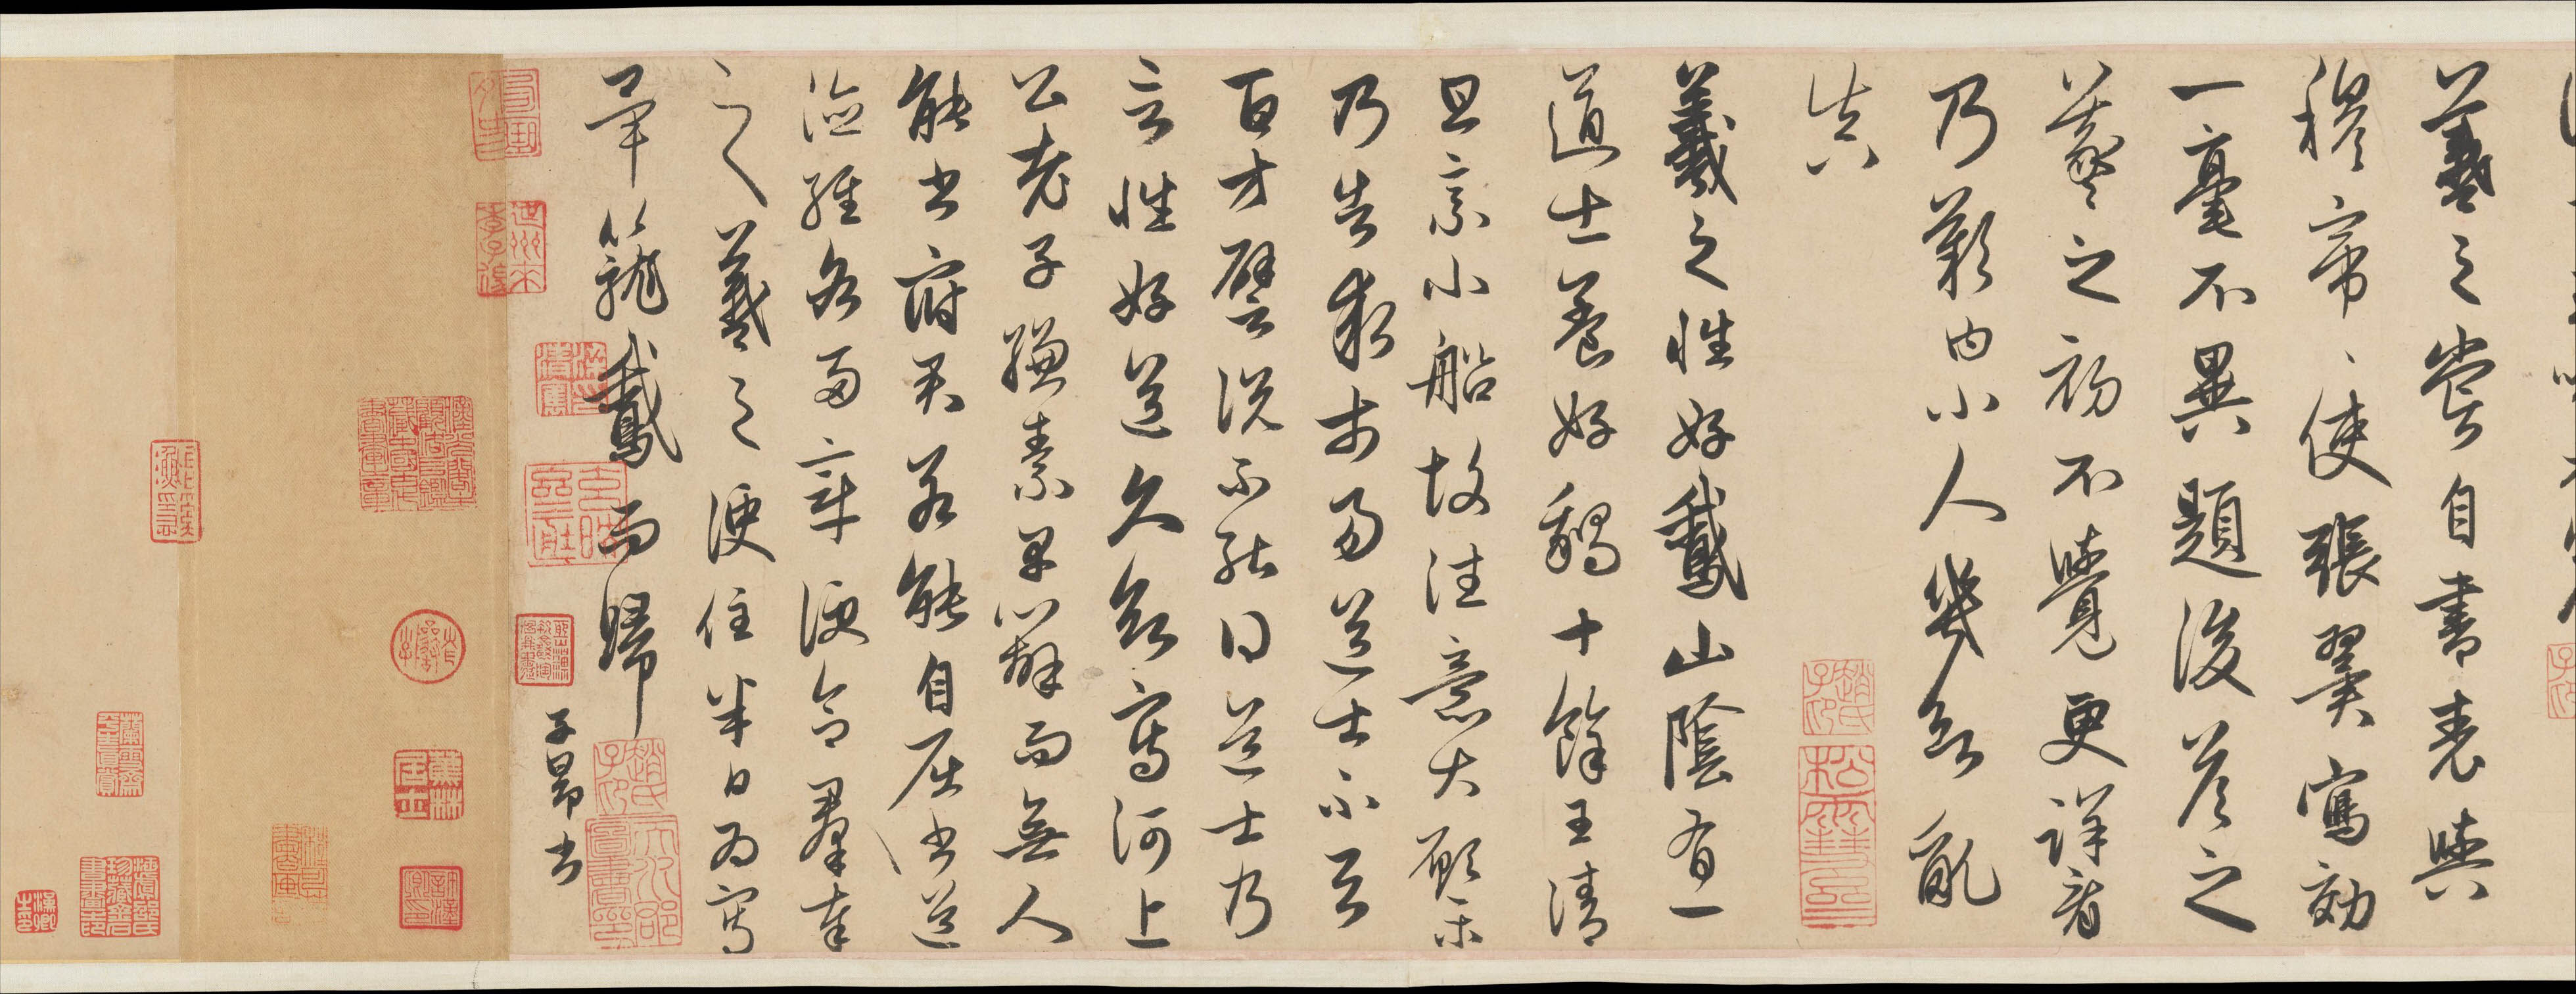 羲之嘗自書表與
穆帝〻使張翼寫効
一毫不異題後答之
羲之初不覺更詳看
乃歎曰小人幾欲亂
真
趙氏子昂
松雪齋
羲之性好鵞山陰有一
道士養好鵝十餘王清
旦乘小船故往意大願樂
乃告求市易道士不與
百方譬說不能得道士乃
言性好道久欲寫河上
公老子縑素早辦而無人
能書府君若能自屈書道
德經各兩章便合羣奉
之羲之便住半日為寫
畢籠鵞而歸
子昂書
趙氏子昂
天水郡圖書印